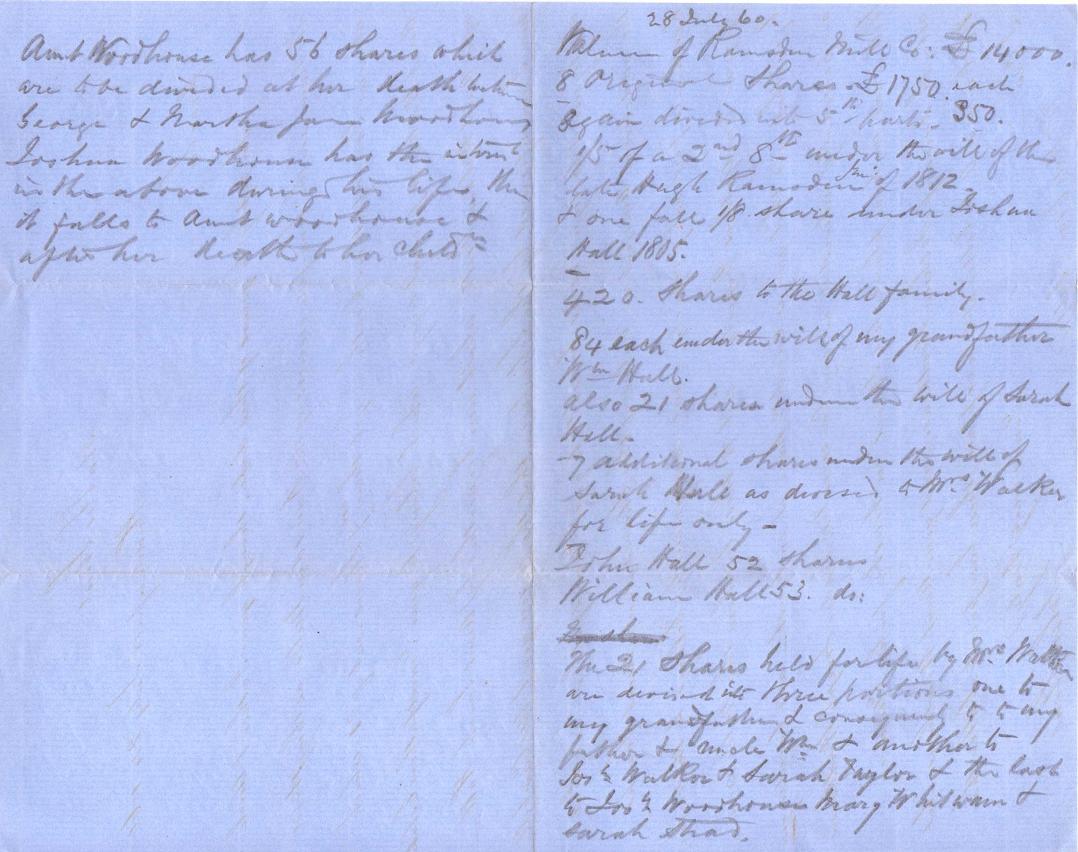 Aunt Woodhouse has 56 shares which
are to be divided at her death between
George & Martha Jane Woodhouse
Joshua Woodhouse has the interest
in the above during his life, then
it falls to Aunt Woodhouse &
after her death to her childn
28 July 60.
Value of Ramsden Mill Co: £14000.
8 Original Shares. £1750 each
again divided into 5th parts. 350.
1/5 of a 2nd 8th under the will of the
late Hugh Ramsden of 1812
& one full 1/8 share under Joshua
Hall 1805.
420. Shares to the Hall family.
84 each under the will of my grandfather
Wm Hall.
also 21 shares under the will of Sarah
Hall.
7 additional shares under the will of
Sarah Hall as devised to Mrs Walker
for life only -
John Hall 52 shares
William Hall 53. do:
The 21 Shares held for life by Mrs Walker
are devised into three portions one to
my grandfather & consequently to my
father & uncle Wm & another to
Josh Walker & Sarah Taylor & the last
to Josh Woodhouse Mary Whitwam &
Sarah Shad.